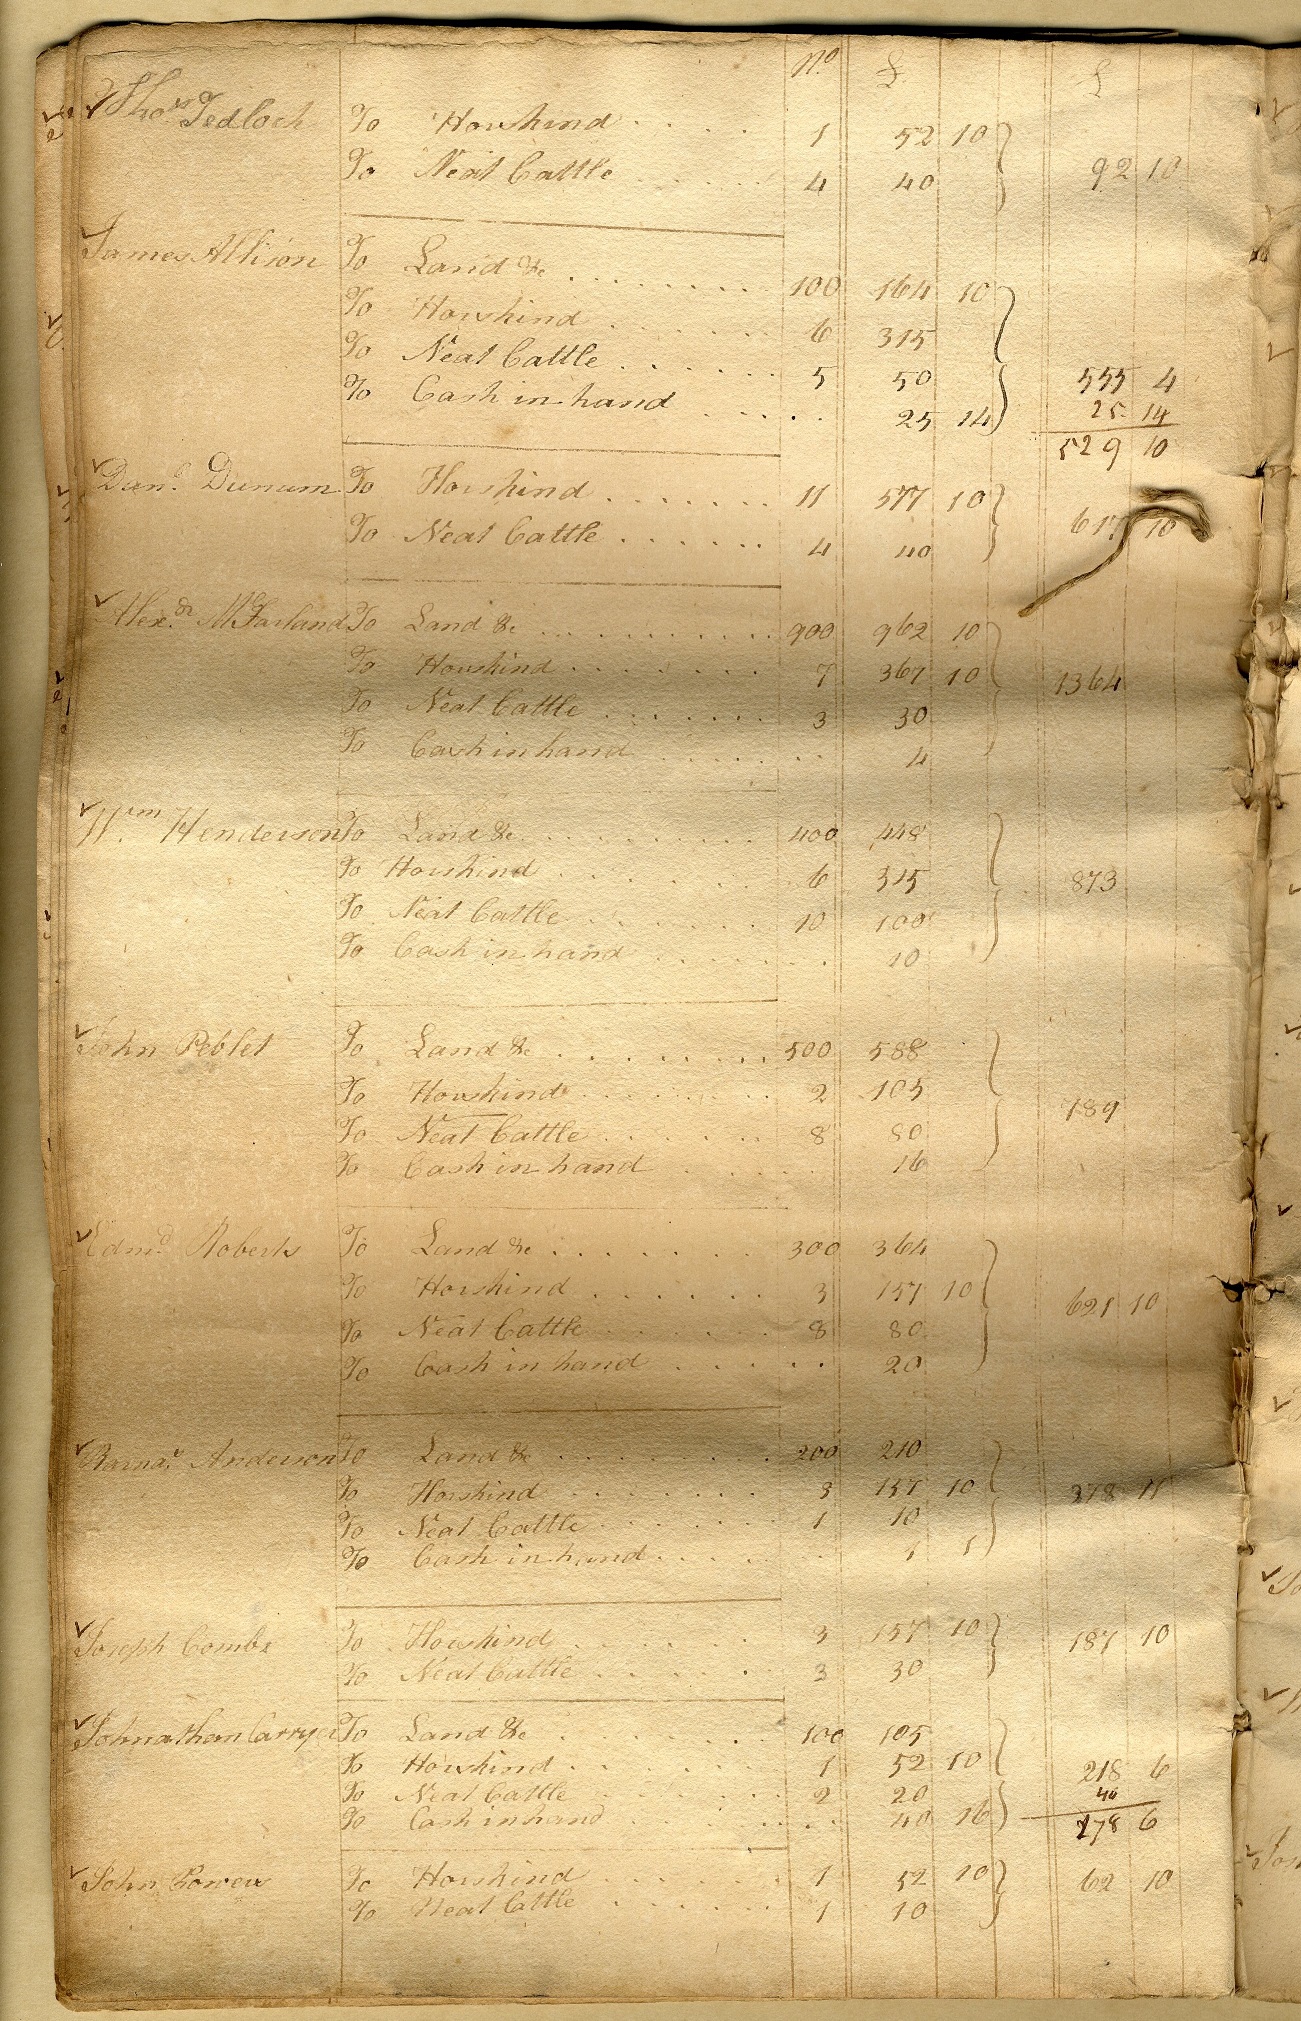 No. £ £
Thos. Tedloch To Horskind . . . . 1 52 10
To Neat Cattle . . . . . 4 40 92 10
James Allison To Land &c . . . . . . . . 100 164 10
To Horskind . . . . . . . 6 315
To Neat Cattle . . . . . . . 5 50 555 4
To Cash in hand . . . . . 25 14 25 14
529 10
Danl. Dunum To Horskind . . . . . . . 11 577 10
To Neat Cattle . . . . . . . 4 40 617 10
Alexdr. McFarland To Land &c . . . . . . . . . 900 962 10
To Horskind . . . . . . . . 7 367 10 1364
To Neat Cattle . . . . . . . 3 30
To Cash in hand . . . . . . . 4
Wm. Henderson To Land &c . . . . . . . . . 400 448
To Horskind . . . . . . . 6 315 873
To Neat Cattle . . . . . . . 10 100
To Cash in hand . . . . . . . 10
John Peblet To Land &c . . . . . . . . . 500 588
To Horskind . . . . . . . . 2 105
To Neat Cattle . . . . . . 8 80 789
To Cash in hand . . . . 16
Edmd. Roberts To Land &c . . . . . . . 300 364
To Horskind . . . . . . . 3 157 10 621 10
To Neat Cattle . . . . . . . 8 80
To Cash in hand . . . . . 20
Barnar. Anderson To Land &c . . . . . . . . 200 210
To Horskind . . . . . . . 3 157 10 378 11
To Neat Cattle . . . . . . . 1 10
To Cash in hand . . . . . . 1 1
Joseph Combs To Horskind . . . . . . 3 157 10 187 10
To Neat Cattle . . . . . 3 30
Johnathan Carryer To Land &c . . . . . . . . 100 105
To Horskind . . . . . . . 1 52 10 218 6
To Neat Cattle . . . . . . . 2 20 40
To Cash in hand . . . . . . . 40 16 178 6
John Bowen To Horskind . . . . . . . 1 52 10 62 10
To Neat Cattle . . . . . . . 1 10